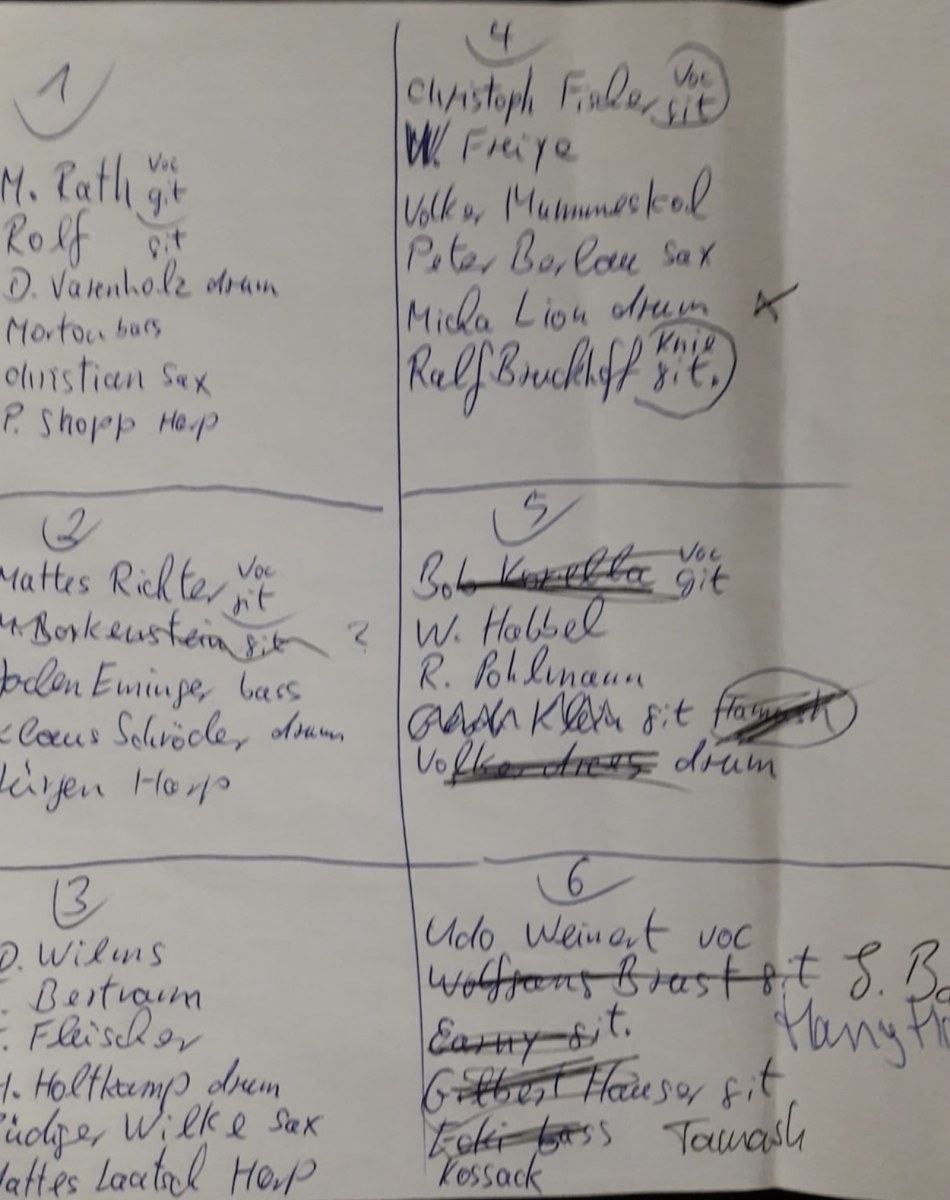 1
M. Rath voc git
Rolf git
D. Varenholz drum
Morton bass
christian Sax
P. Shopp Harp
2
Mattes Richter voc git
Borkenstein git ?
Eminger bass
Klaus Schröder drum
Jürgen Harp
3
D. Wilms
Bertram
Fleischer
H. Holtkamp drum
Rüdiger Wilke Sax
Mattes Laatsch Harp
4
Christoph Fischer voc git
W. Freiye
Volker Mummeskod
Peter Borlau Sax
Micha Lion drum x
Ralf Bruckhoff Knie git.
5
Bob voc git
W. Habbel
R. Pohlmann
Klein git
Volker drees drum
6
Udo Weinert voc
Wolfgang Brast git
git.
Gilbert Hauser git
Ecki bass Tamash
Kossack
Harry